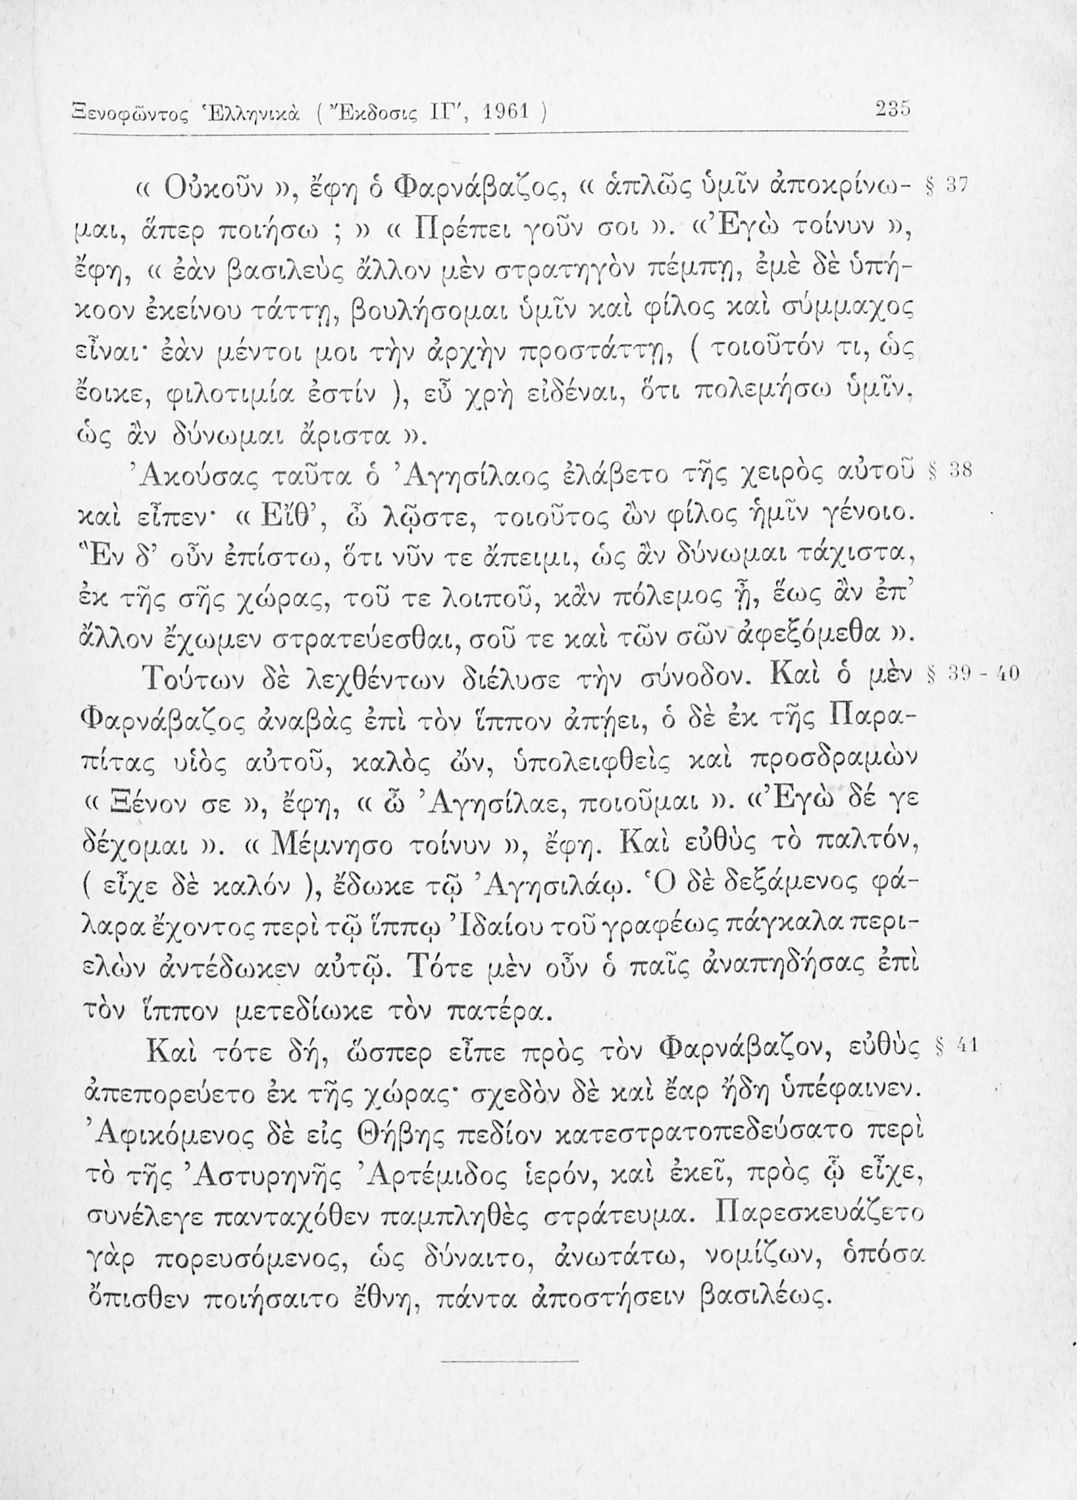 Ξενοφῶντος Ἑλληνικὰ ( Ἔκδοσις ΙΓ′, 1961 ) 235
« Οὐκοῦν », ἔφη ὁ Φαρνάβαζος, « ἁπλῶς ὑμῖν ἀποκρίνω- § 37
μαι, ἅπερ ποιήσω ; » « Πρέπει γοῦν σοι ». «Ἐγὼ τοίνυν »,
ἔφη, « ἐὰν βασιλεὺς ἄλλον μὲν στρατηγὸν πέμπῃ, ἐμὲ δὲ ὑπή-
κοον ἐκείνου τάττῃ, βουλήσομαι ὑμῖν καὶ φίλος καὶ σύμμαχος
εἶναι· ἐὰν μέντοι μοι τὴν ἀρχὴν προστάττῃ, ( τοιοῦτόν τι, ὡς
ἔοικε, φιλοτιμία ἐστίν ), εὖ χρὴ εἰδέναι, ὅτι πολεμήσω ὑμῖν,
ὡς ἂν δύνωμαι ἄριστα ».
Ἀκούσας ταῦτα ὁ Ἀγησίλαος ἐλάβετο τῆς χειρὸς αὐτοῦ § 38
καὶ εἶπεν· « Εἴθ’, ὦ λῷστε, τοιοῦτος ὢν φίλος ἡμῖν γένοιο.
Ἓν δ’ οὖν ἐπίστω, ὅτι νῦν τε ἄπειμι, ὡς ἂν δύνωμαι τάχιστα,
ἐκ τῆς σῆς χώρας, τοῦ τε λοιποῦ, κἂν πόλεμος ᾖ, ἕως ἂν ἐπ’
ἄλλον ἔχωμεν στρατεύεσθαι, σοῦ τε καὶ τῶν σῶν ἀφεξόμεθα ».
Τούτων δὲ λεχθέντων διέλυσε τὴν σύνοδον. Καὶ ὁ μὲν § 39 - 40
Φαρνάβαζος ἀναβὰς ἐπὶ τὸν ἵππον ἀπῄει, ὁ δὲ ἐκ τῆς Παρα-
πίτας υἱὸς αὐτοῦ, καλὸς ὤν, ὑπολειφθεὶς καὶ προσδραμὼν
« Ξένον σε », ἔφη, « ὦ Ἀγησίλαε, ποιοῦμαι ». «Ἐγὼ δέ γε
δέχομαι ». « Μέμνησο τοίνυν », ἔφη. Καὶ εὐθὺς τὸ παλτόν,
( εἶχε δὲ καλόν ), ἔδωκε τῷ Ἀγησιλάῳ. Ὁ δὲ δεξάμενος φά-
λαρα ἔχοντος περὶ τῷ ἵππῳ Ἰδαίου τοῦ γραφέως πάγκαλα περι-
ελὼν ἀντέδωκεν αὐτῷ. Τότε μὲν οὖν ὁ παῖς ἀναπηδήσας ἐπὶ
τὸν ἵππον μετεδίωκε τὸν πατέρα.
Καὶ τότε δή, ὥσπερ εἶπε πρὸς τὸν Φαρνάβαζον, εὐθὺς § 41
ἀπεπορεύετο ἐκ τῆς χώρας· σχεδὸν δὲ καὶ ἔαρ ἤδη ὑπέφαινεν.
Ἀφικόμενος δὲ εἰς Θήβης πεδίον κατεστρατοπεδεύσατο περὶ
τὸ τῆς Ἀστυρηνῆς Ἀρτέμιδος ἱερόν, καὶ ἐκεῖ, πρὸς ᾧ εἶχε,
συνέλεγε πανταχόθεν παμπληθὲς στράτευμα. Παρεσκευάζετο
γὰρ πορευσόμενος, ὡς δύναιτο, ἀνωτάτω, νομίζων, ὁπόσα
ὄπισθεν ποιήσαιτο ἔθνη, πάντα ἀποστήσειν βασιλέως.